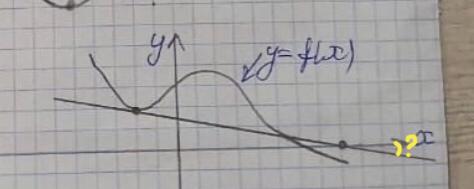 y
y=f(x)
x
)?